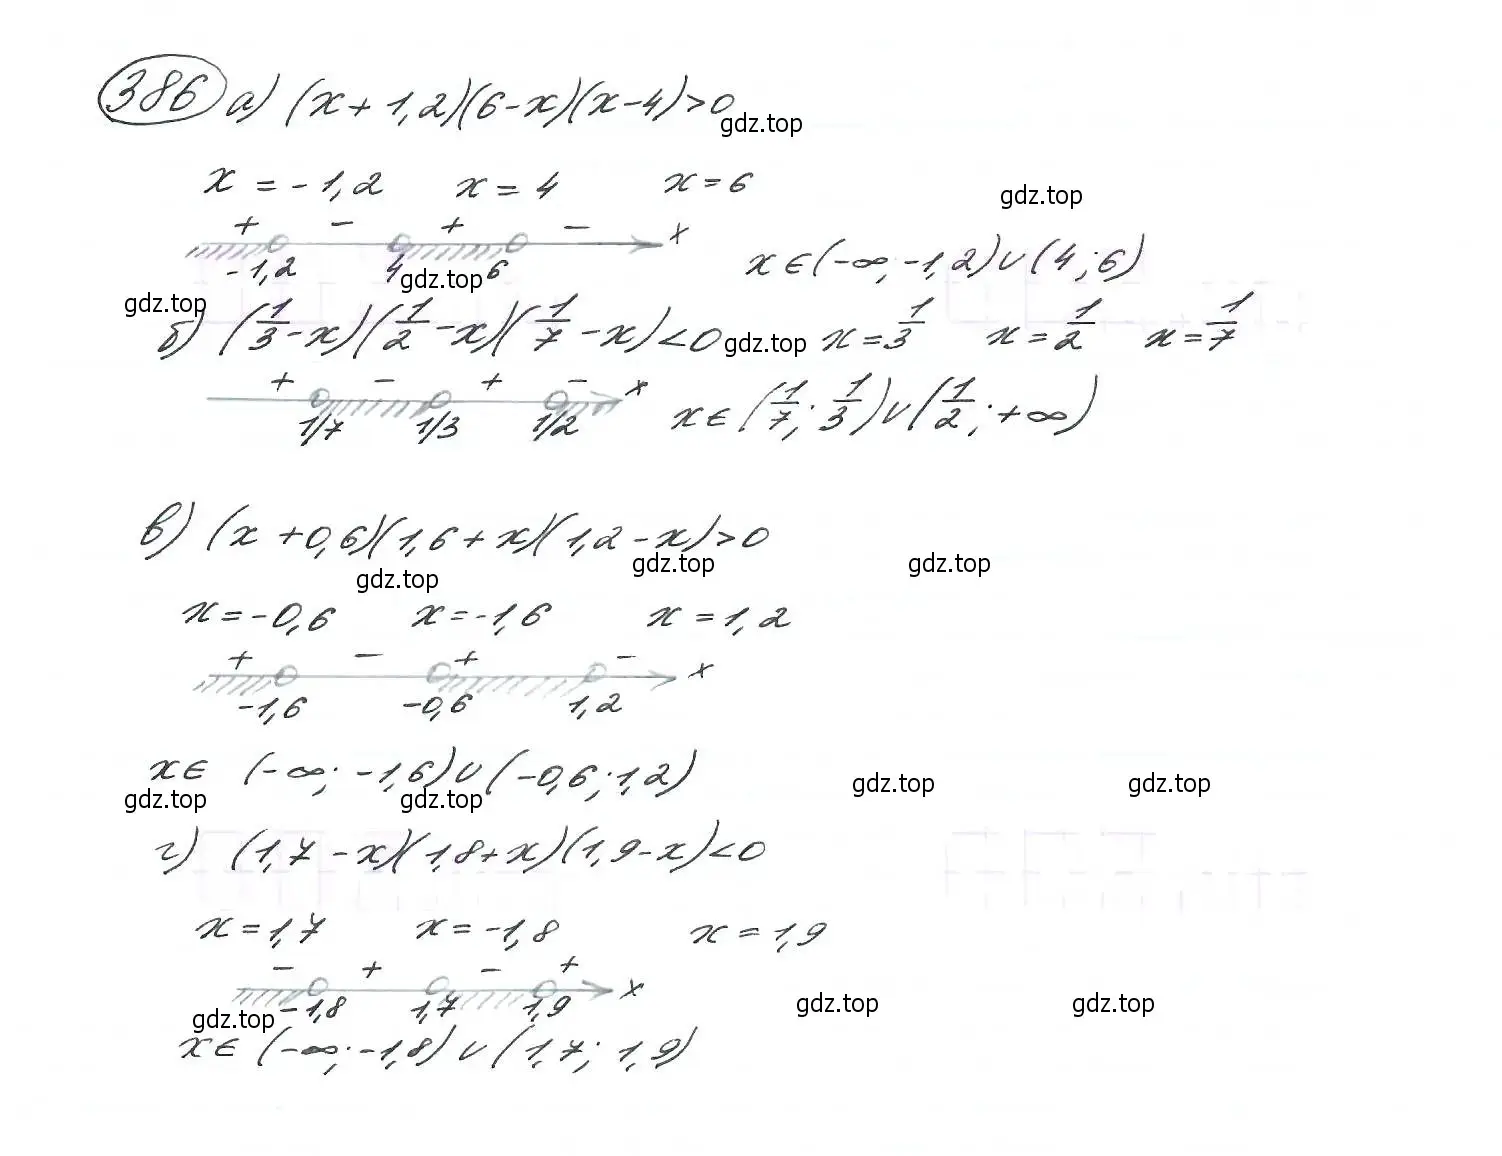 386 а) (x + 1,2)(6-x)(x-4)>0
gdz.top
x = -1,2 x = 4 x = 6
gdz.top
+ - + - x
-1,2 4 6
x ∈ (-∞; -1,2) ∪ (4; 6)
gdz.top
gdz.top
б) (1/3 - x)(1/2 - x)(1/7 - x) < 0 x = 1/3 x = 1/2 x = 1/7
gdz.top
+ - + - x
1/7 1/3 1/2
x ∈ (1/7; 1/3) ∪ (1/2; +∞)
в) (x + 0,6)(1,6 + x)(1,2 - x) > 0
gdz.top gdz.top gdz.top
x = -0,6 x = -1,6 x = 1,2
+ - + - x
-1,6 -0,6 1,2
x ∈ (-∞; -1,6) ∪ (-0,6; 1,2)
gdz.top gdz.top gdz.top gdz.top
г) (1,7 - x)(1,8 + x)(1,9 - x) < 0
x = 1,7 x = -1,8 x = 1,9
- + - + x
-1,8 1,7 1,9
gdz.top gdz.top gdz.top
x ∈ (-∞; -1,8) ∪ (1,7; 1,9)